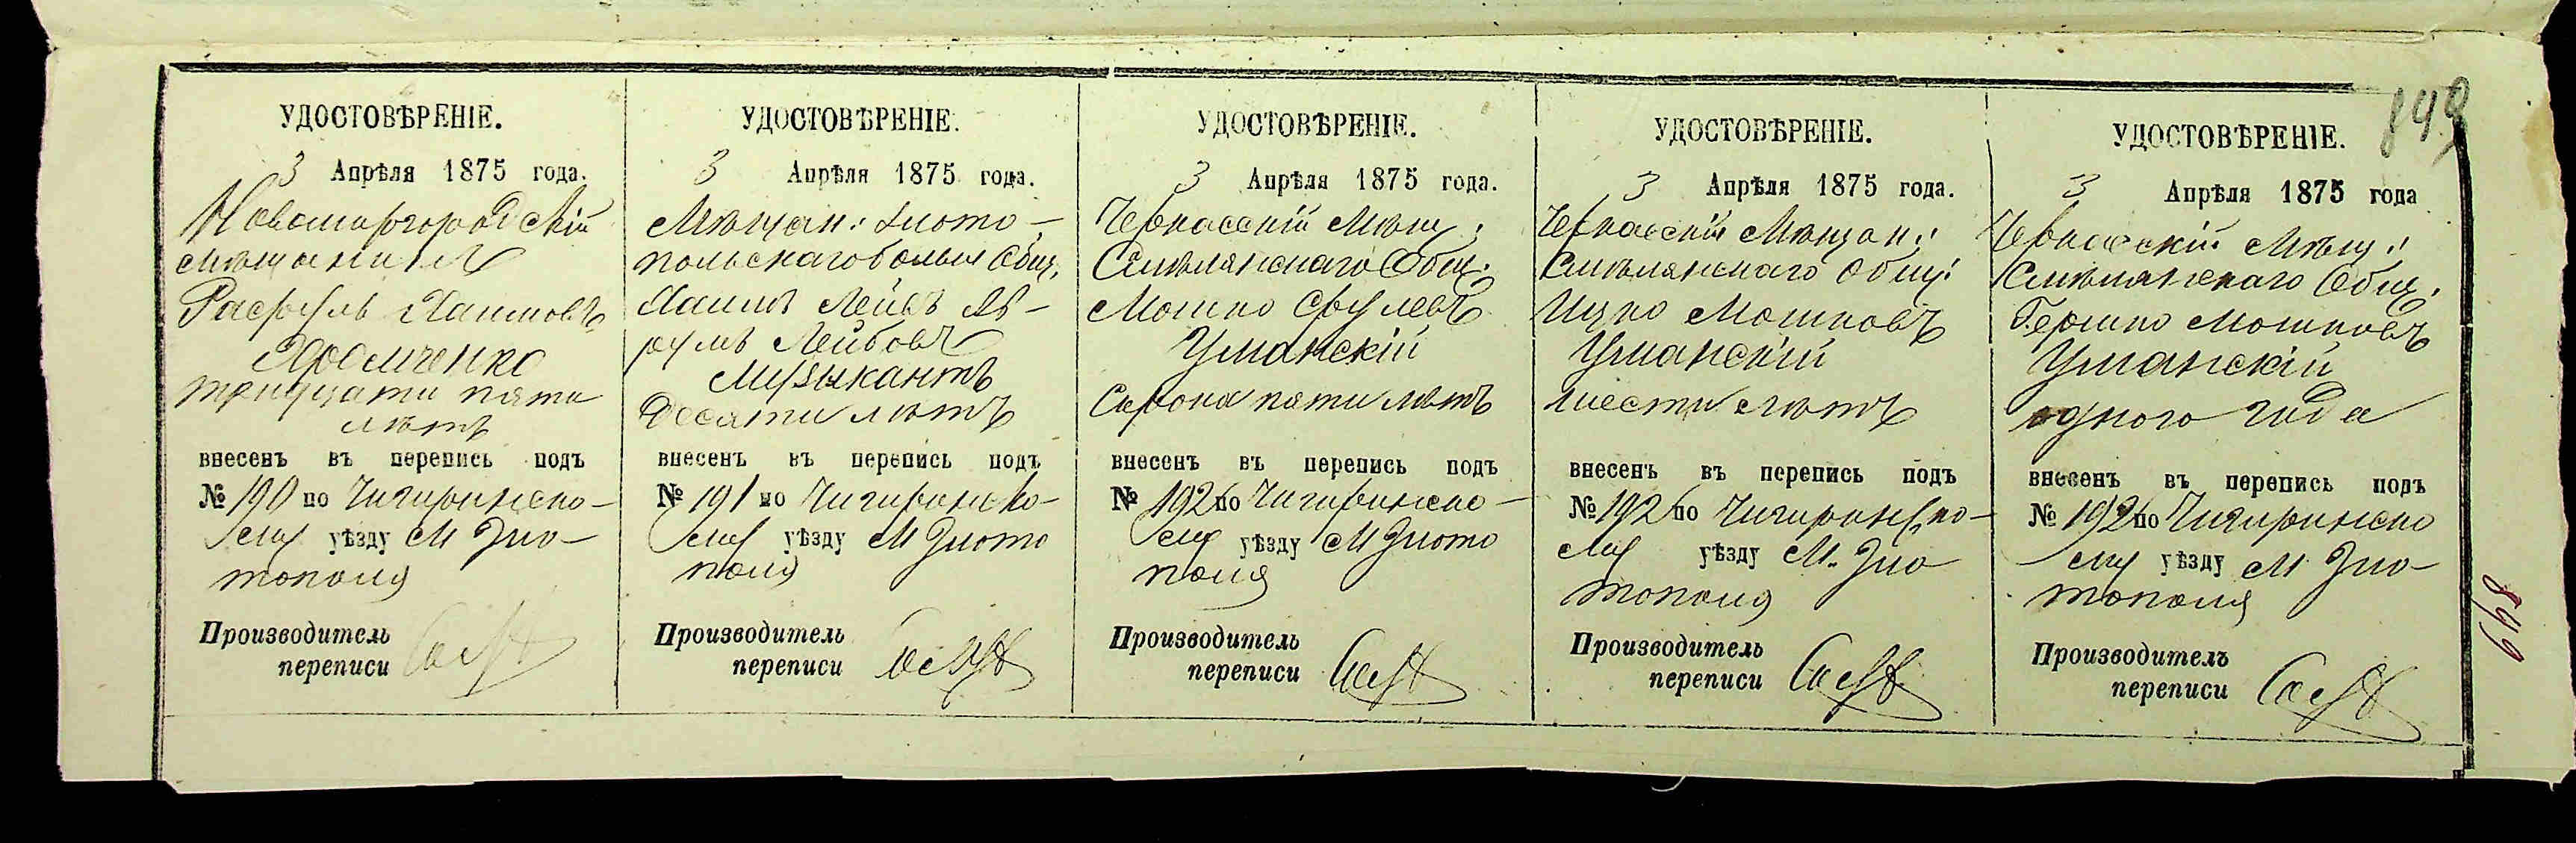 849
УДОСТОВѢРЕНІЕ.
3 Апрѣля 1875 года.
Новомиргородскій
мѣщанинъ
Расфуль Хаимовъ
тридцати пяти
лѣтъ
внесенъ въ перепись подъ
№ 190 по Чигиринско-
му уѣзду М Зло-
тополя
Производитель
переписи
УДОСТОВѢРЕНІЕ.
3 Апрѣля 1875 года.
Мѣщан: Злото-
польскаго Общ.
Хаимъ Лейбъ Ав-
румъ Лейбовъ
Музыкантъ
Десяти лѣтъ
внесенъ въ перепись подъ
№ 191 по Чигиринско-
му уѣзду М Злото
поля
Производитель
переписи
УДОСТОВѢРЕНІЕ.
3 Апрѣля 1875 года.
Черкасскій Мѣщ:
Смѣлянскаго Общ.
Мошко Срулевъ
Уманскій
Сорока пяти лѣтъ
внесенъ въ перепись подъ
№ 192 по Чигиринско-
му уѣзду М Злото
поля
Производитель
переписи
УДОСТОВѢРЕНІЕ.
3 Апрѣля 1875 года.
Черкасскій Мѣщан:
Смѣлянскаго Общ:
Ицко Мошковъ
Уманскій
шести лѣтъ
внесенъ въ перепись подъ
№ 192 по Чигиринско-
му уѣзду М. Зло
тополя
Производитель
переписи
УДОСТОВѢРЕНІЕ.
3 Апрѣля 1875 года
Черкасскій Мѣщ:
Смѣлянскаго Общ.
Гершко Мошковъ
Уманскій
одного года
внесенъ въ перепись подъ
№ 192 по Чигиринско
му уѣзду М Зло-
тополя
Производитель
переписи
849